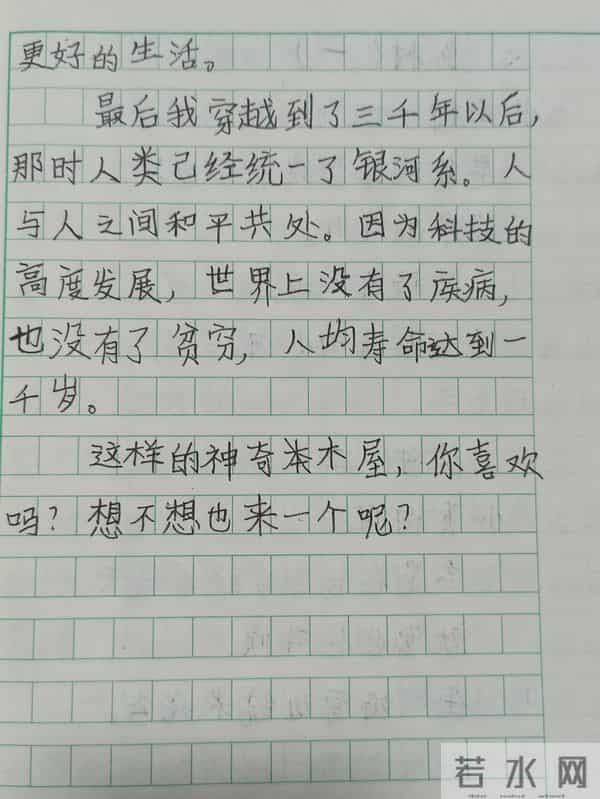 更好的生活。
最后我穿越到了三千年以后，
那时人类已经统一了银河系。人
与人之间和平共处。因为科技的
高度发展，世界上没有了疾病，
也没有了贫穷，人均寿命达到一
千岁。
这样的神奇木屋，你喜欢
吗？想不想也来一个呢？
若水网